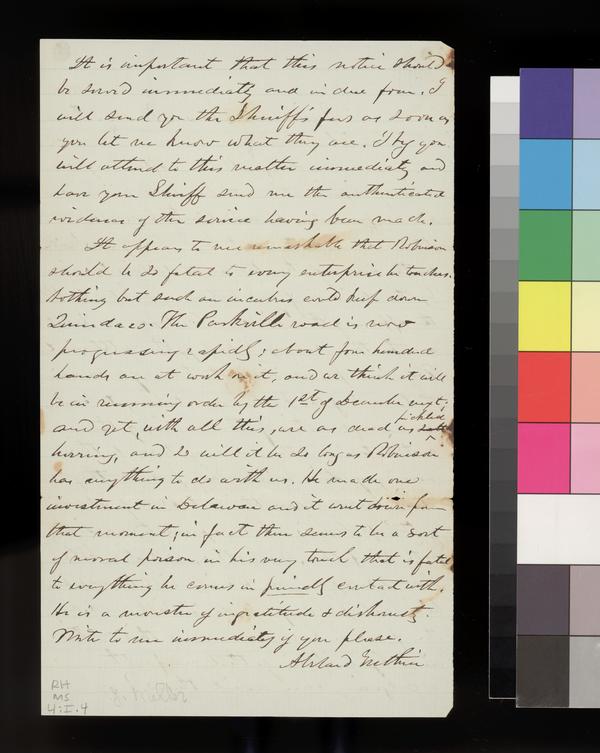 It is important that this notice should
be served immediately and in due form. I
will send you the Sheriff's fees as soon as
you let me know what they are. I beg you
will attend to this matter immediately and
have your Sheriff send me the authenticated
evidence of the service having been made.
It appears to me remarkable that Robinson
should be so fatal to every enterprise he touches.
Nothing but such an incubus could keep down
Quindaro. The Parkville road is now
progressing rapidly; about four hundred
hands are at work on it, and we think it will
be in running order by the 1st of December next.
pickled
and yet, with all this, are as dead as
herring, and so will it be so long as Robinson
has anything to do with us. He made one
investment in Delaware and it went down from
that moment; in fact there seems to be a sort
of moral poison in his very touch that is fatal
to everything he comes in friendly contact with.
He is a monster of ingratitude & dishonesty.
Write to me immediately if you please.
Abelard Guthrie
RH
MS
4:I.4